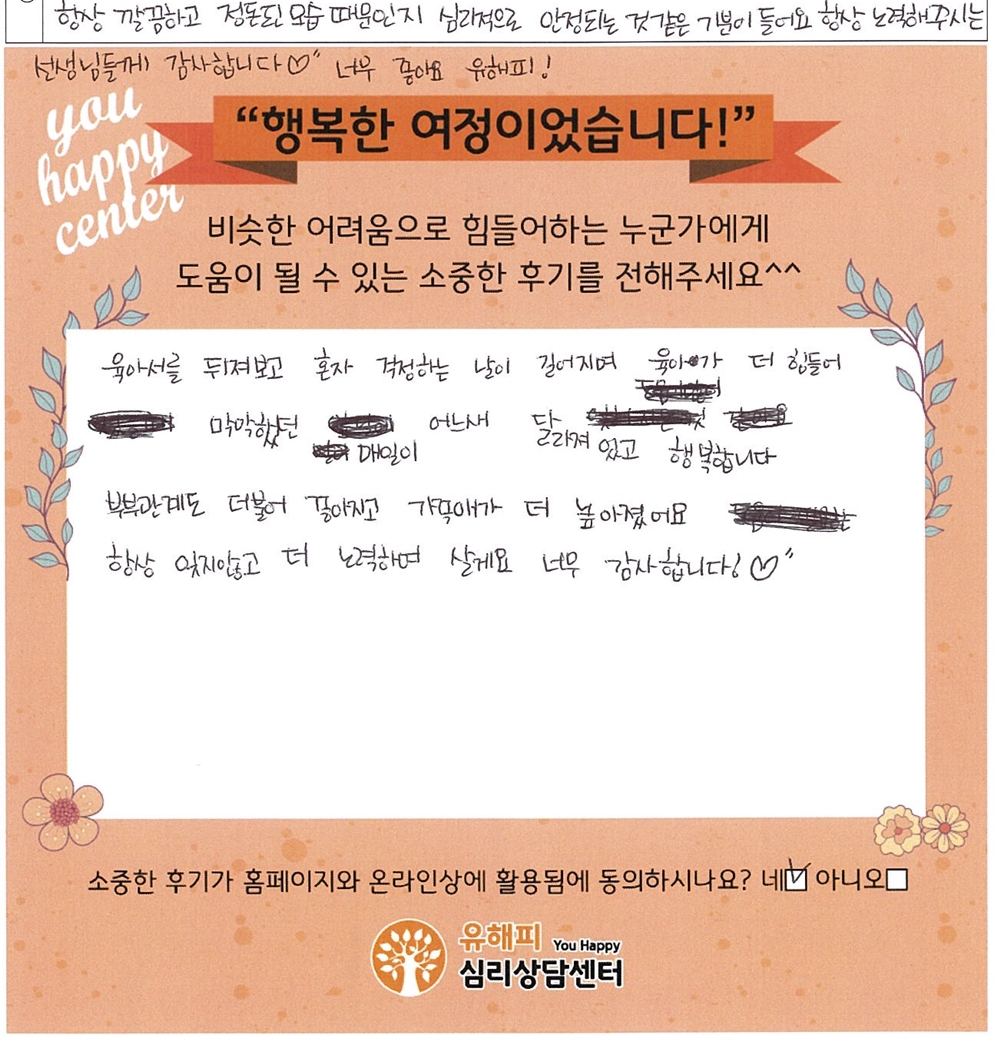 항상 깔끔하고 정돈된 모습 때문인지 심리적으로 안정되는 것 같은 기분이 들어요 항상 노력해주시는
선생님들께 감사합니다♡" 너무 좋아요 유해피!
you
happy
center
“행복한 여정이었습니다!”
비슷한 어려움으로 힘들어하는 누군가에게
도움이 될 수 있는 소중한 후기를 전해주세요^^
육아서를 뒤져보고 혼자 걱정하는 날이 길어지며 육아가 더 힘들어
막막했던 어느새 달라져
매일이 있고 행복합니다
부부관계도 더불어 깊어지고 가족애가 더 높아졌어요
항상 잊지않고 더 노력하며 살게요 너무 감사합니다!♡"
소중한 후기가 홈페이지와 온라인상에 활용됨에 동의하시나요? 네☑ 아니오□
유해피 You Happy
심리상담센터